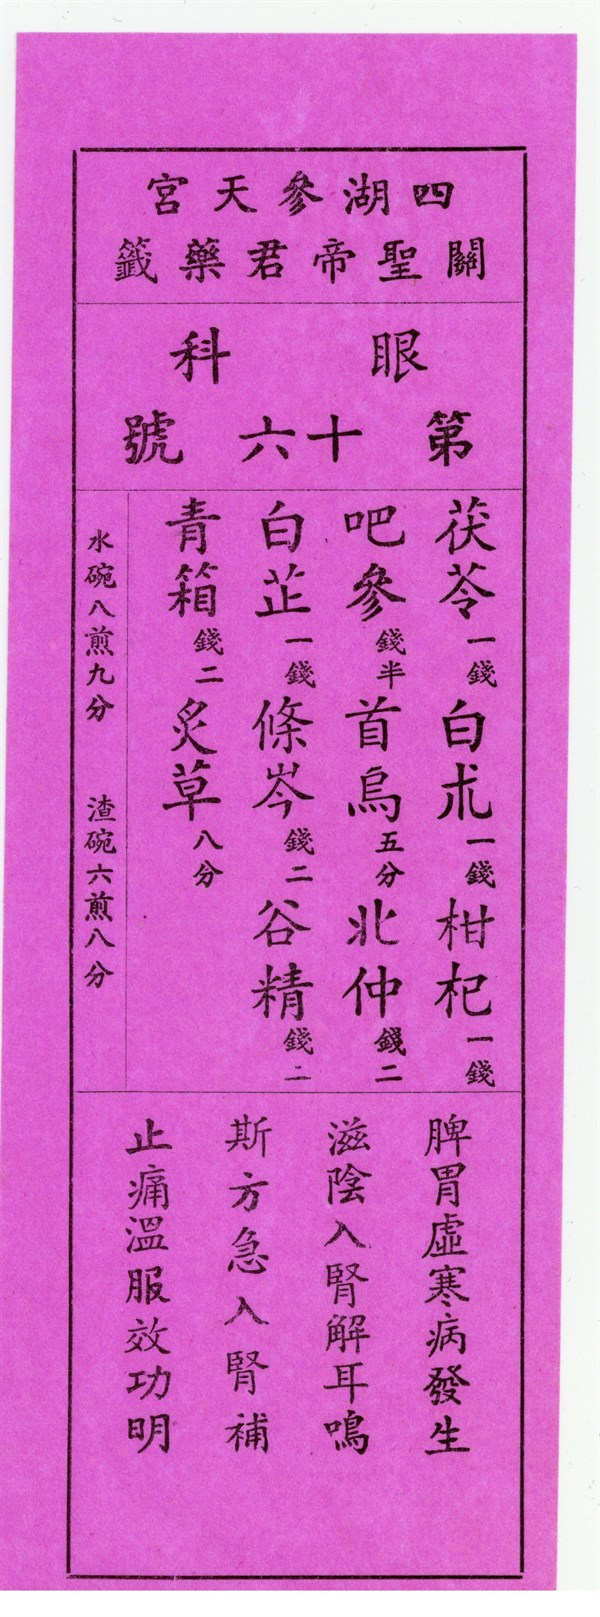 四湖參天宮
關聖帝君藥籤
眼科
第十六號
茯苓一錢 白朮一錢 柑杞一錢
吧參錢半 首烏五分 北仲錢二
白芷一錢 條岑錢二 谷精錢二
青箱錢二 炙草八分
水碗八煎九分 渣碗六煎八分
脾胃虛寒病發生
滋陰入腎解耳鳴
斯方急入腎補
止痛溫服效功明